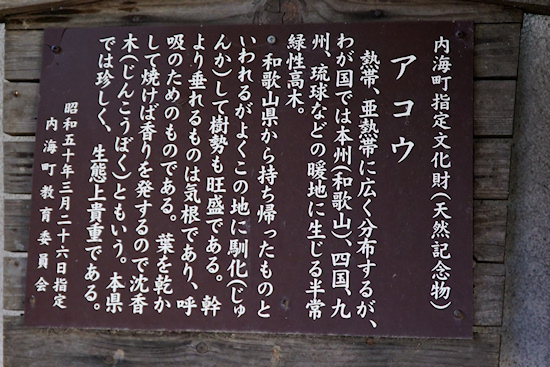 内海町指定文化財(天然記念物)
アコウ
熱帯、亜熱帯に広く分布するが、
わが国では本州(和歌山)、四国、九
州、琉球などの暖地に生じる半常
緑性高木。
和歌山県から持ち帰ったものと
いわれるがよくこの地に馴化(じゅ
んか)して樹勢も旺盛である。幹
より垂れるものは気根であり、呼
吸のためのものである。葉を乾か
して焼けば香りを発するので沈香
木(じんこうぼく)ともいう。本県
では珍しく、生態上貴重である。
昭和五十年三月二十六日指定
内海町教育委員会